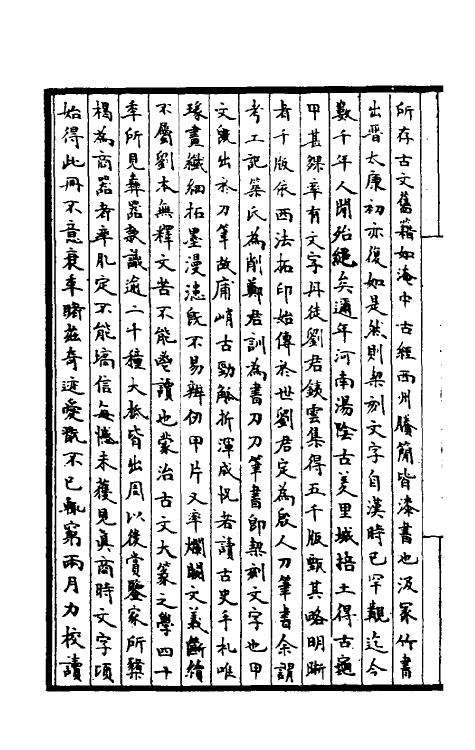 所存古文舊籍如淹中古經西州賸簡皆漆書也汲冢竹書
出晉太康初亦復如是然則栔刻文字自漢時已罕覯迄今
數千年人閒殆絕矣邇年河南湯陰古羑里城掊土得古龜
甲甚夥率有文字丹徒劉君鐵雲集得五千版甄其略明晰
者千版依西法拓印始傳於世劉君定為殷人刀筆書余謂
考工記築氏為削鄭君訓為書刀刀筆書即栔刻文字也甲
文旣出於刀筆故庸峭古勁觚折渾成怳若讀古史手札唯
瑑畫纖細拓墨漫漶旣不易辨仞甲片又率爛闕文義斷續
不屬劉本無釋文苦不能鬯讀也蒙治古文大篆之學四十
年所見彝器款識逾二千種大抵皆出周以後賞鑒家所櫫
楬為商器者率肊定不能塙信每憾未獲見真商時文字頃
始得此冊不意衰年睹茲奇迹愛翫不已輒窮兩月力校讀